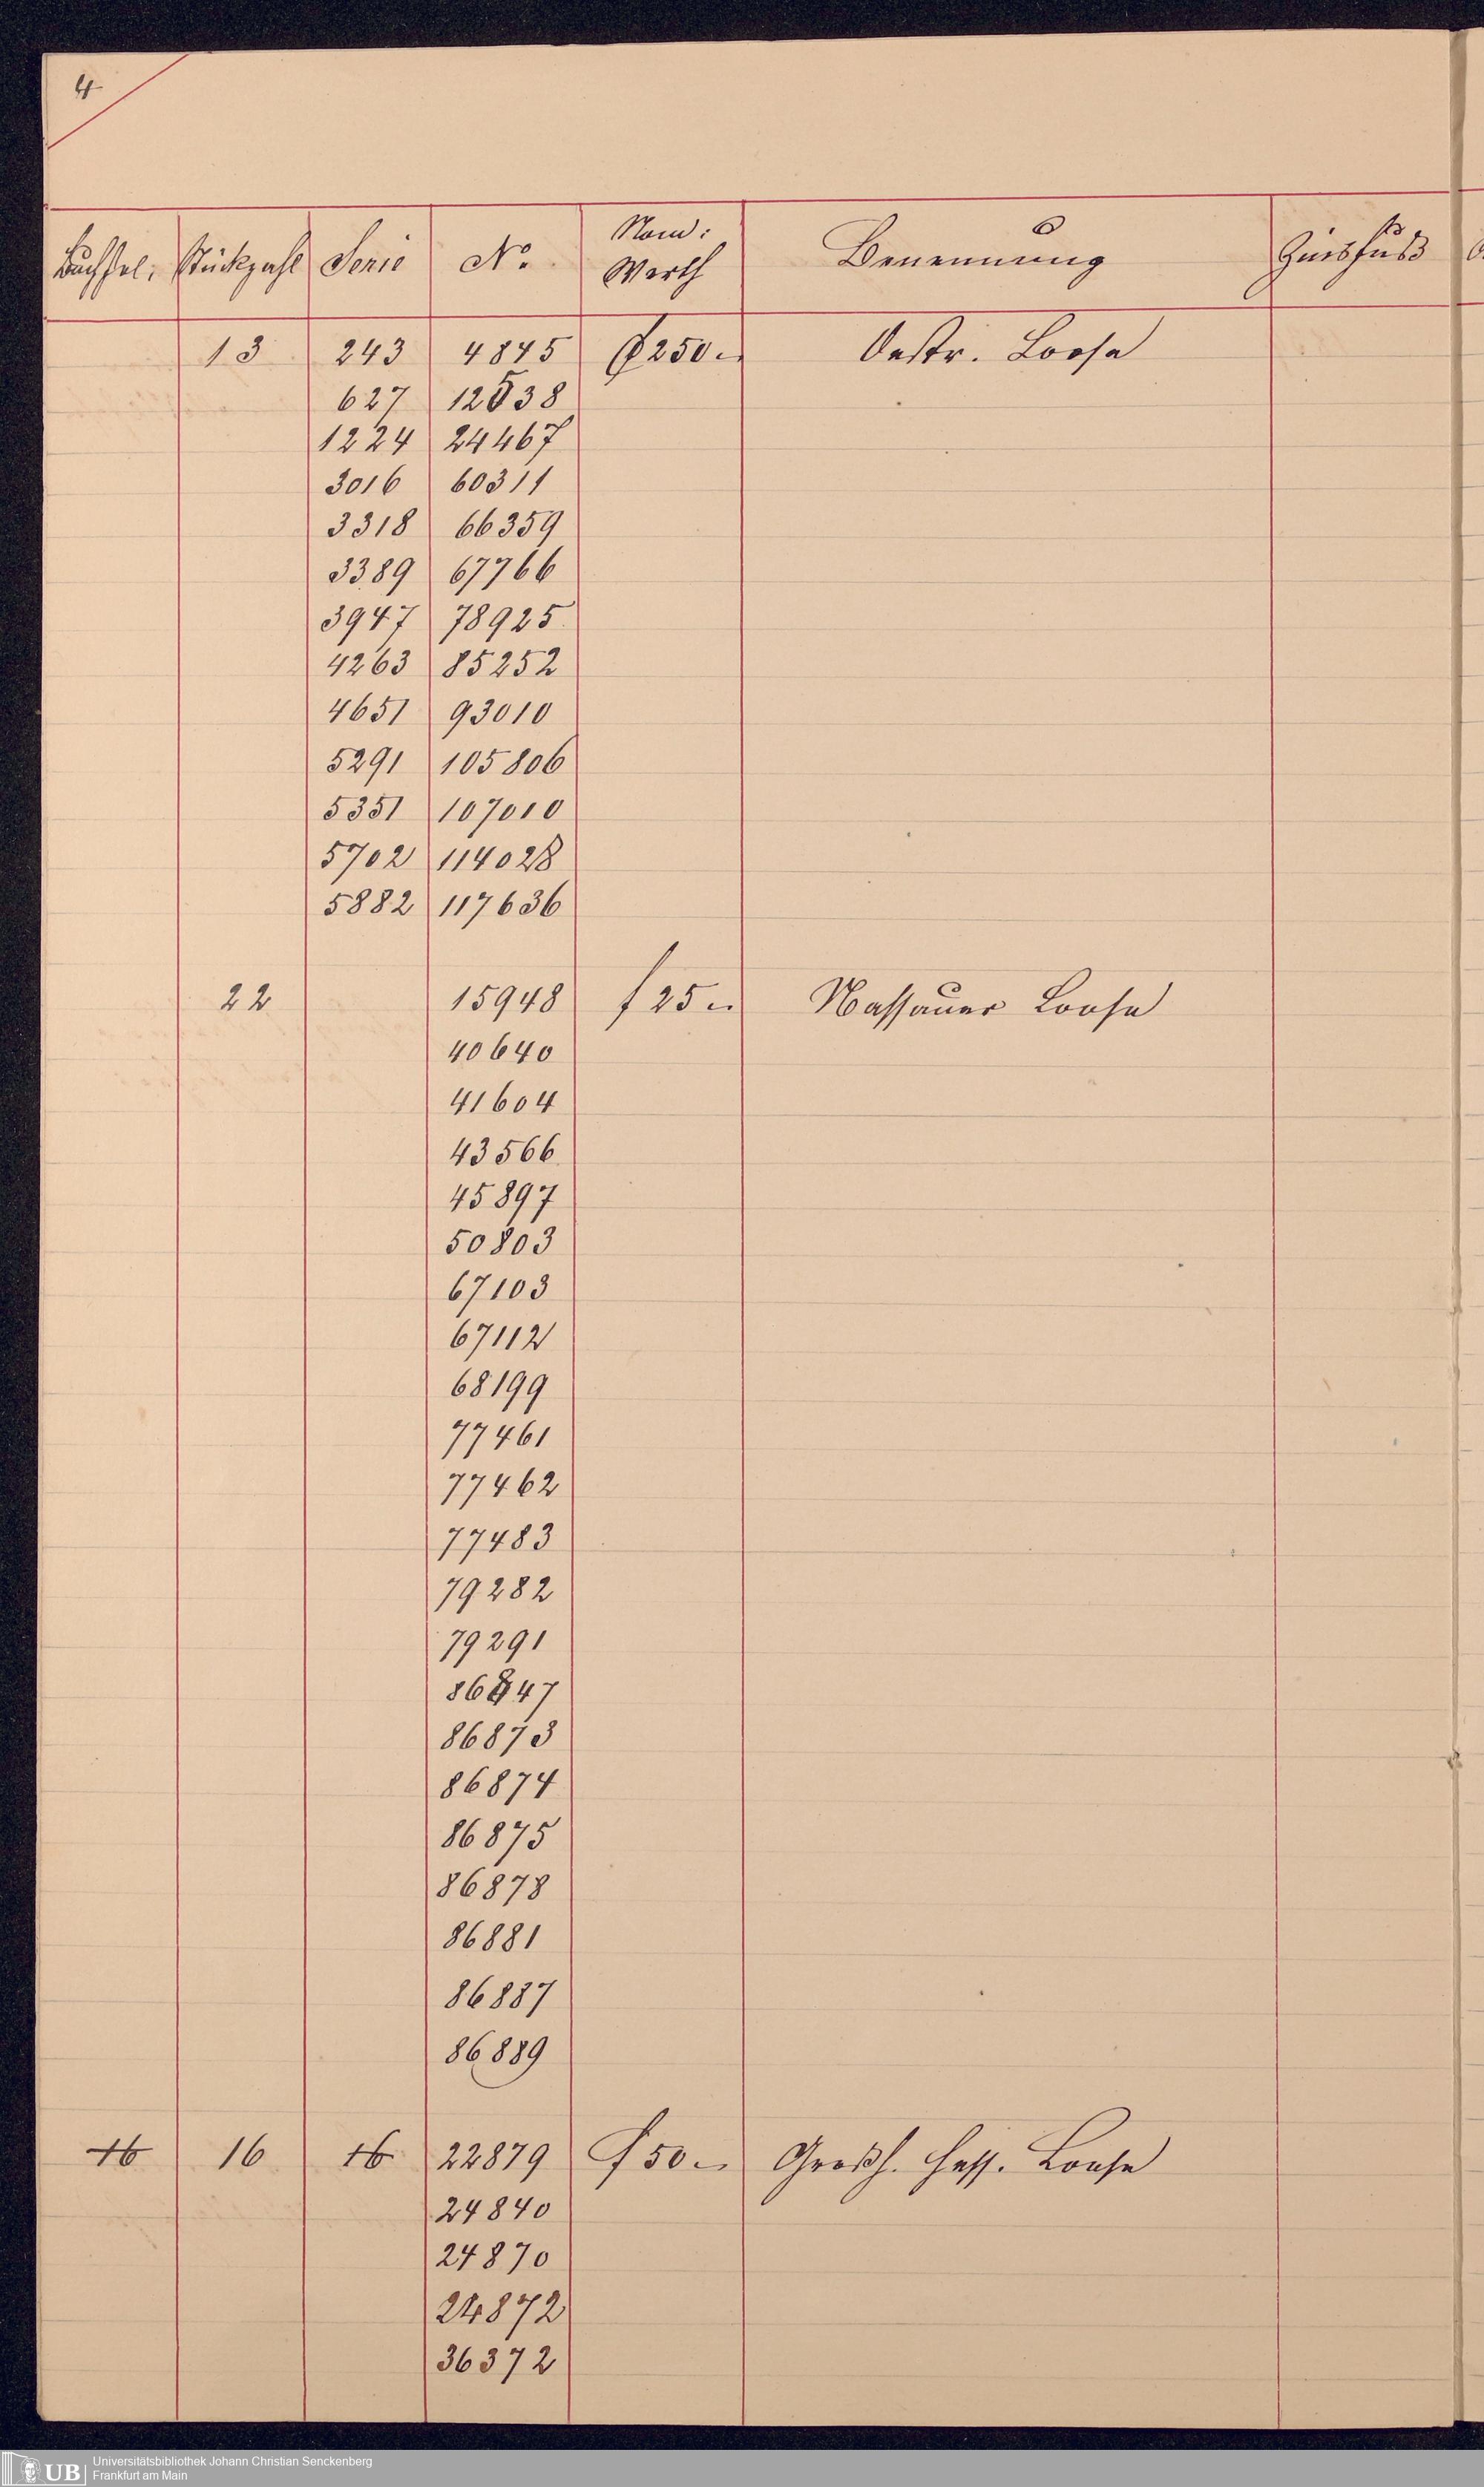 4
Buchfol. Stückzahl Serie No. Nom: Werth Benennung Zinsfuß
13 243 4845 f 250.- Oestr. Loose
627 12538
1224 24467
3016 60311
3318 66359
3389 67766
3947 78925
4263 85252
4651 93010
5291 105806
5351 107010
5702 114028
5882 117636
22 15948 f 25.- Nassauer Loose
40640
41604
43566
45897
50803
67103
67112
68199
77461
77462
77483
79282
79291
86847
86873
86874
86875
86878
86881
86887
86889
16 16 16 22879 f 50.- Großh. Hess. Loose
24840
24870
24872
36372
UB Universitätsbibliothek Johann Christian Senckenberg
Frankfurt am Main